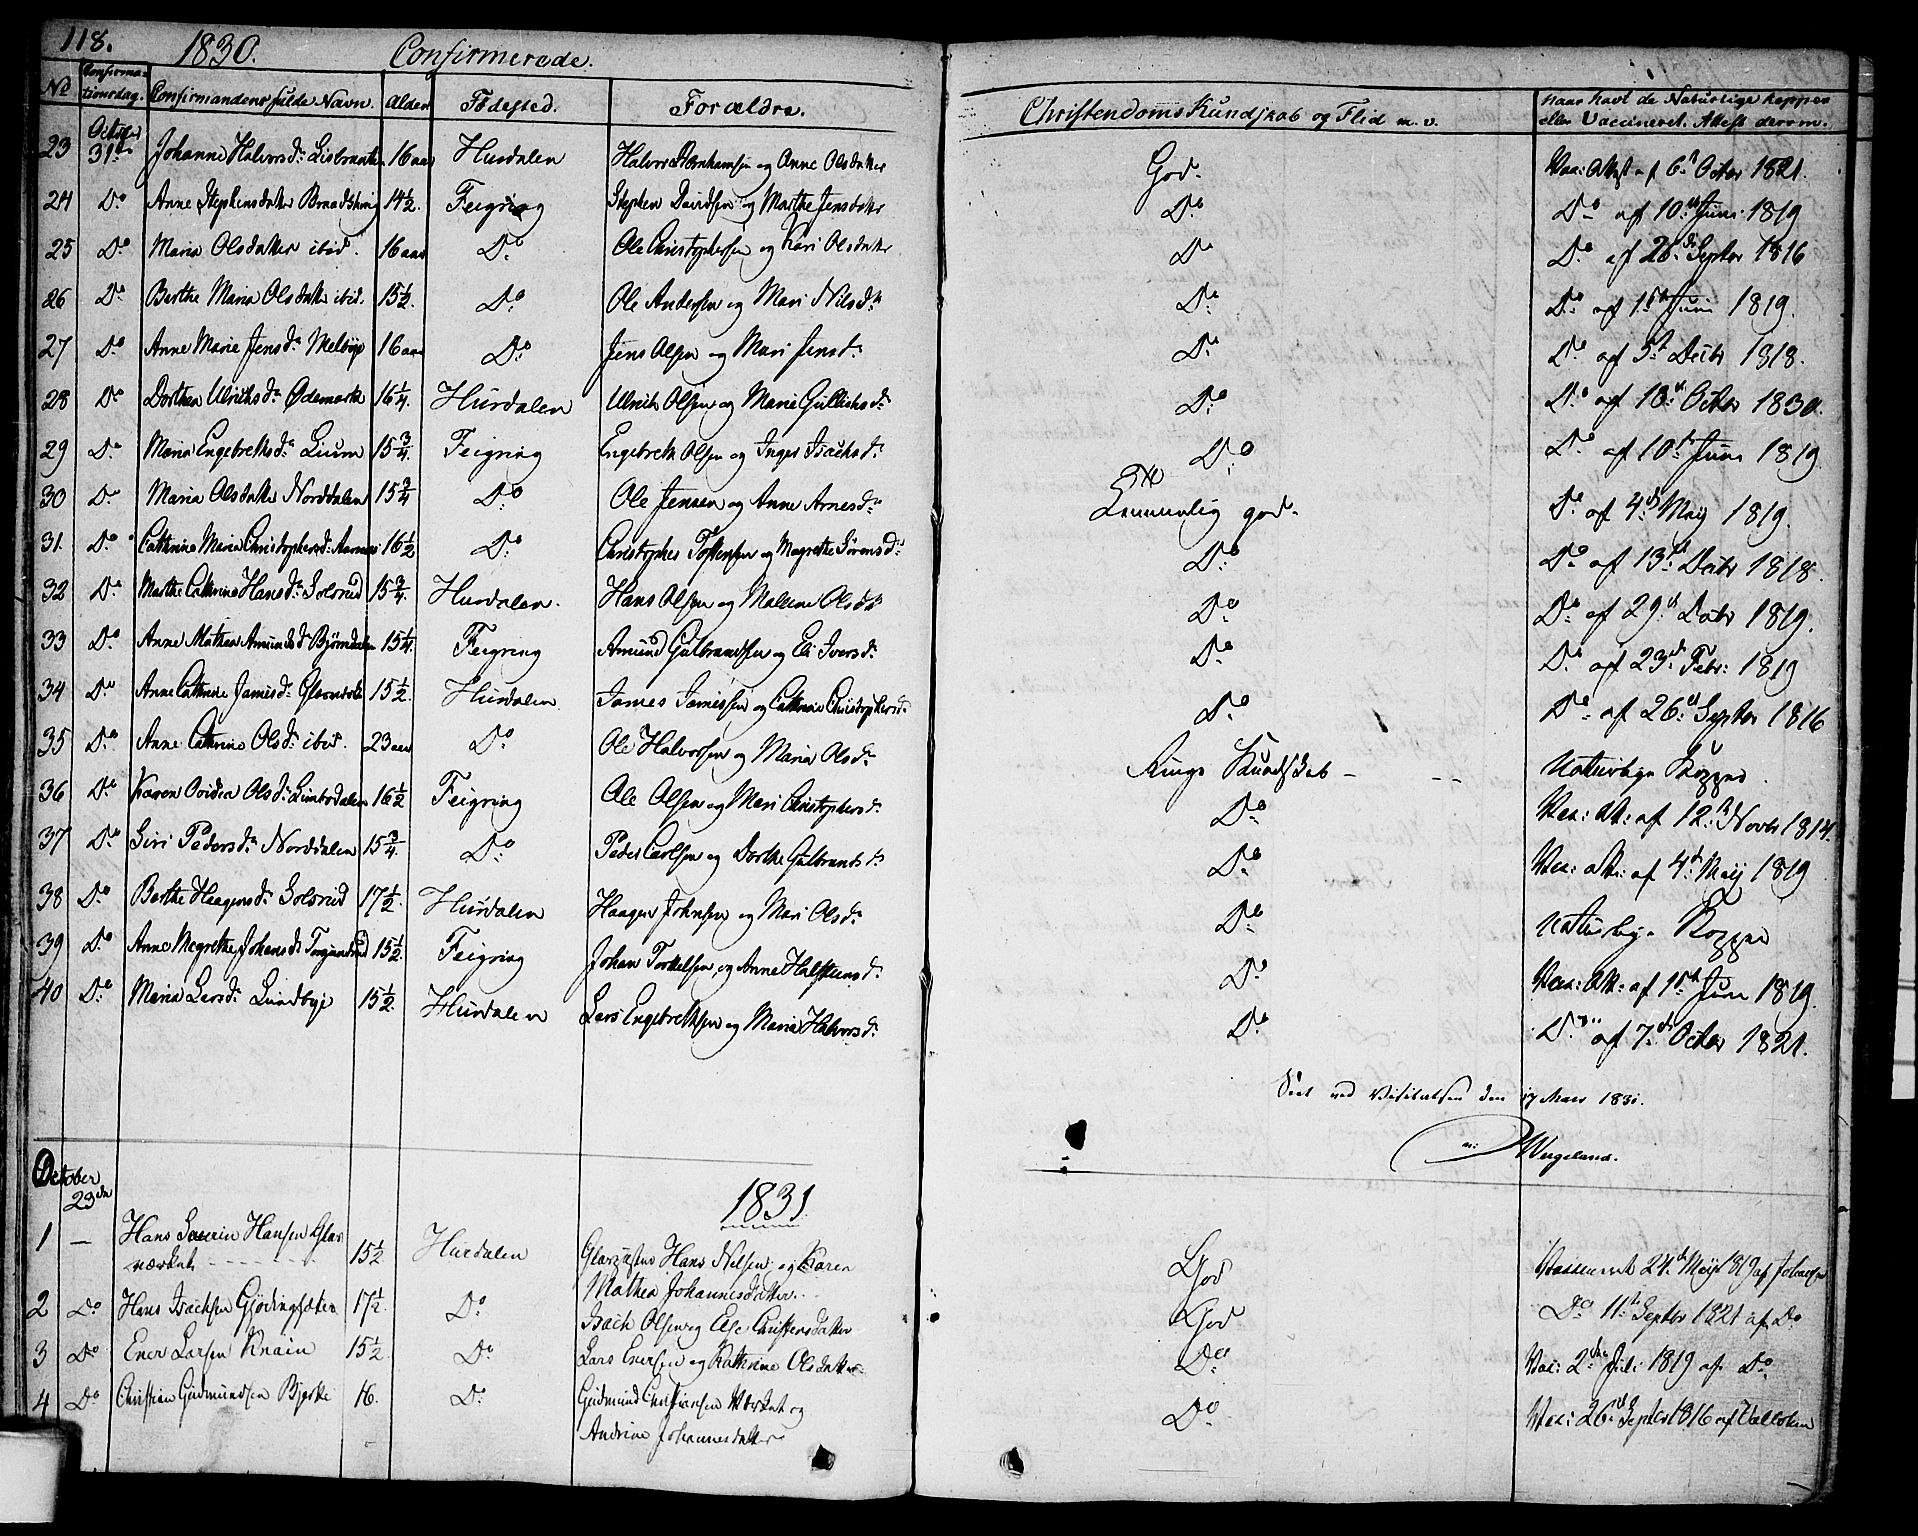 118. 1830. Confirmerede.
No Confirmationsdag. Confirmandens fulde Navn. Alder Fødested. Forældre. Christendoms Kundskab og Flid m. v. Naar havt de Naturlige Kopper eller Vaccineret. Attest derom.
23 October 31te Johanne Halvorsdr 16 aar Hurdalen Halvor Abrahamsen og Anne Olsdatter God. Vac: Attest af 6. Octbr 1821.
24 Do Anne Stephensdatter 14½. Feigring Stephen Davidsen og Marthe Jensdatter Do Do af 10de Juni 1819
25 Do Maria Olsdatter ibid. 16 aar Do Ole Christophersen og Kari Olsdatter Do Do af 26de Septbr 1816
26 Do Berthe Maria Olsdatter ibid. 15½. Do Ole Andersen og Mari Nilsdr Do Do af 15de Juni 1819.
27 Do Anne Marie Jensdr Melbye 16 aar Do Jens Olsen og Mari Jensdr Do Do af 5te Decbr 1818.
28 Do Dorthea Ulriksdr Ødemark 16¼. Hurdalen Ulrik Olsen og Marie Gulliksdr Do Do af 18de Octbr 1830.
29 Do Maria Engebretsdr Lium 15¾. Feigring Engebreth Olsen og Inger Isachsdr Do Do af 10de Juni 1819
30 Do Maria Olsdatter Norddalen 15¾ Do Ole Jensen og Anne Arnesdr Temmelig god. Do af 4de Maij 1819.
31. Do Cathrine Maria Christophersdr 16½ Do Christopher Tostensen og Magrethe Sørensdr Do Do af 13de Decbr 1818.
32 Do Marthe Cathrine Hansdr Solsrud 15¾. Hurdalen. Hans Olsen og Malene Olsdr Do Do af 29de Decbr 1819.
33 Do Anne Mathea Amundsdr Bjørndalen 15¼. Feigring Amund Gulbrandsen og Eli Iversdr Do Do af 23de Febr: 1819
34 Do Anne Cathrine Jamesdr 15½. Hurdalen James Jamessen og Cathrine Christophersdr Do Do af 26de Septbr 1816
35 Do Anne Cathrine Olsdr ibid. 23 aar Do Ole Halvorsen og Maria Olsdr Ringe Kundskab - Naturlige Kopper.
36 Do Karen Olsdr 16½ Feigring Ole Olsen og Mari Christophersdr Do Vac: At: af 12te Novbr 1814.
37 Do Siri Pedersdr Norddalen 15¾. Do Peder Carlsen og Dorthe Gulbrandsdr Do Vac: At: af 4de Maij 1819
38 Do Berthe Haagensdr Solsrud 17½. Hurdalen Haagen Johnsen og Mari Olsdr Do Naturlige Kopper
39 Do Anne Megrethe Johansdr 15½. Feigring Johan Torkelsen og Anne Halstensdr Do Vac: At: af 15de Juni 1819.
40 Do Maria Larsdr Lundbye 15½. Hurdalen Lars Engebrethsen og Maria Halvorsdr Do Do af 7de Octbr 1821.
Seet ved Visitatsen den 17 Mars 1831.
Wergeland.
October 23de
1831
1 — Hans Severin Hansen Glasværket 15½ Hurdalen Glarpuster Hans Nelsen og Karen God Vaccineret 24de Maij 1819 af
Mathea Johannesdatter.
2 Do Hans Isachsen Gjødingsæter 17½. Do Isach Olsen og Else Christensdatter God Do 11te Septbr 1821 af Do
3 Do Ener Larsen Knain 15½ Do Lars Enersen og Kathrine Olsdatter Do Vac: 2den Juli 1819 af Do
4 Do Christian Gudmundsen Bjerke 16. Do Gudmund Christiansen Værket og Do Vac: 26de Septbr 1816 af
Andrine Johannesdatter